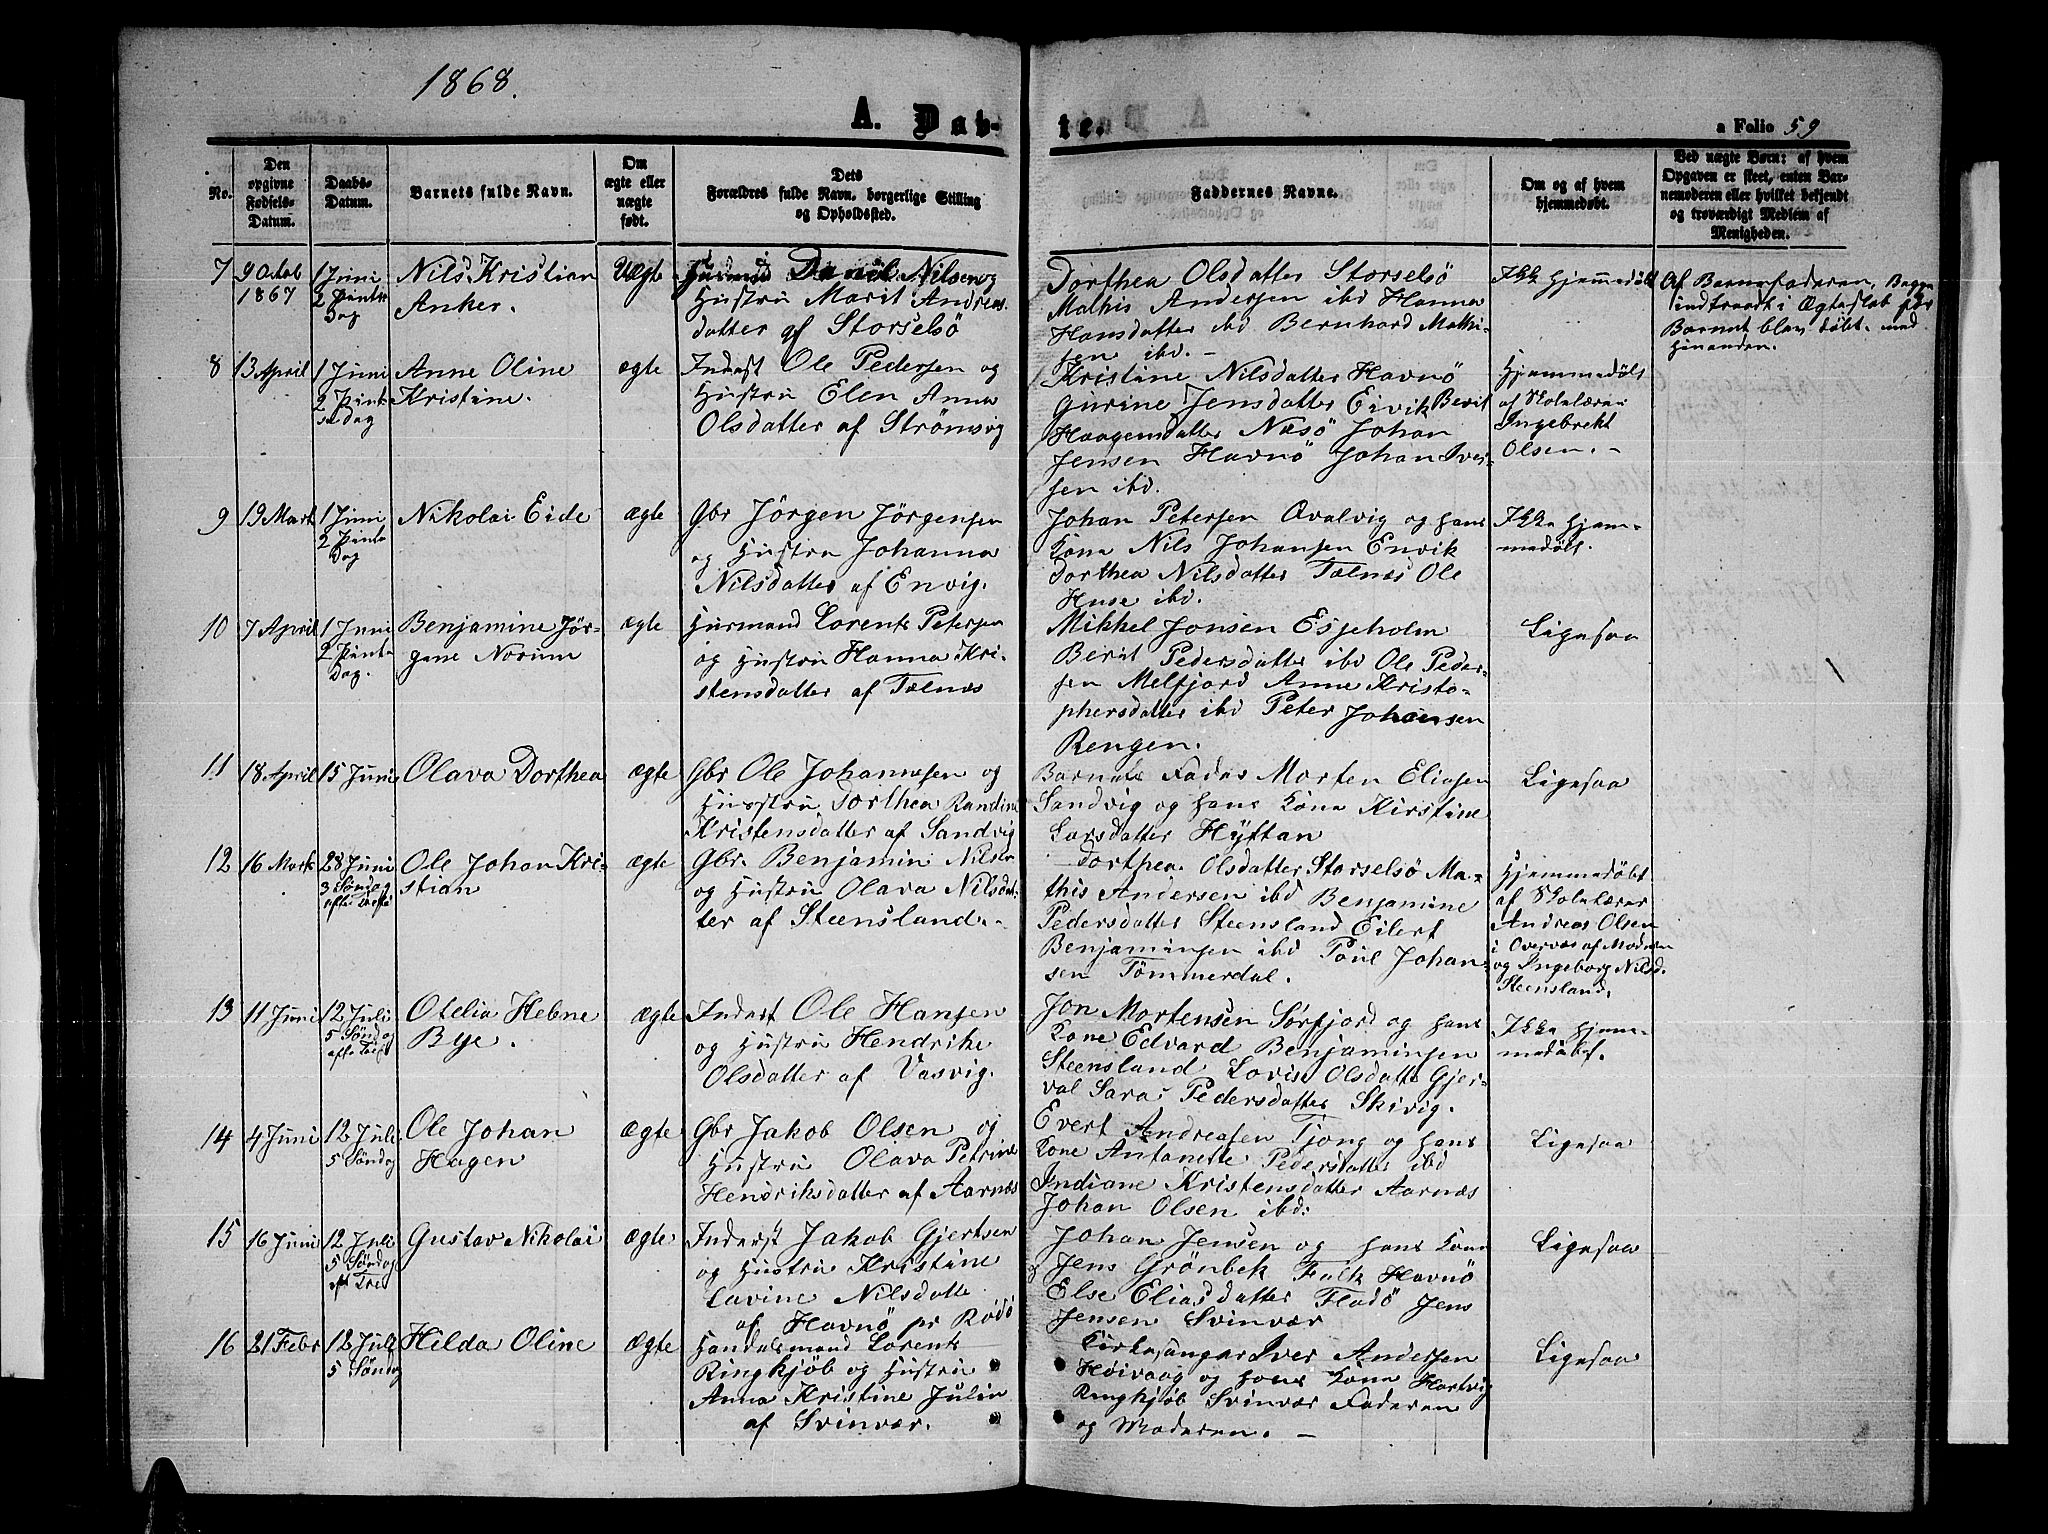 1868.
A. Døb-
te.
a Folio 59
No.
Den
opgivne
Fødsels-
Datum.
Daabs-
Datum.
Barnets fulde Navn.
Om
ægte eller
uægte
født.
Dets
Forældres fulde Navn, borgerlige Stilling
og Opholdssted.
Faddernes Navne.
Om og af hvem
hjemmedøbt.
Ved uægte Børn: af hvem
Opgaven er skeet, enten Bar-
nemoderen eller hvilket bekjendt
og troværdigt Medlem af
Menigheden.
7
9 Octob
1867
1 Juni
2 Pintse
Dag
Nils Kristian
Anker.
Uægte
Huusmand Daniel Nilsen og
Hustru Marit Andreas-
datter af Storselsö
Dorthea Olsdatter Storselsö
Mathis Andersen ibd Hanna
Hansdatter ibd Bernhard Mathi-
sen ibd. -
Ikke hjemmedøbt
Af Barnefaderen, Begge
indtraadt i Ægteskab før
Barnet blev døbt med
hinanden.
8
13 April
1 Juni
2 Pint-
sedag
Anne Oline
Kristine.
ægte
Inderst Ole Pedersen og
Hustru Elen Anna
Olsdatter af Strömsvig
Kristine Nilsdatter Havnö
Gurine Jensdatter Eivik Berit
Haagensdatter Næsö Johan
Jensen Havnö Johan Iver-
sen ibd.
Hjemmedöbt
af Skolelærer
Ingebrekt
Olsen. -
9
19 Mart
1 Juni
2 Pintse
Dag
Nikolai Eide
ægte
Gbr Jörgen Jörgensen
og Hustru Johanna
Nilsdatter af Envig.
Johan Petersen Qvalvig og hans
Kone Nils Johansen Envik
Dorthea Nilsdatter Tælnes Ole
Huse ibd.
Ikke hjem-
medöbt.
10
7 April
1 Juni
2 Pint-
Dag.
Benjamine Jör-
gene Norum
ægte
Husmand Lorents Petersen
og Hustru Hanna Kri-
stensdatter af Tælnes
Mikkel Jonsen Esjeholm
Berit Pedersdatter ibd Ole Peder-
sen Melfjord Anne Kristo-
phersdatter ibd Peter Johansen
Rengen.
Ligesaa
11
18 April
15 Juni
Olava Dorthea
ægte
Gbr Ole Johannesen og
Hustru Dorthea Randine
Kristensdatter af Sandvig
Barnets Fader Morten Eliasen
Sandvig og hans Kone Kirstine
Larsdatter Hÿttan
Ligesaa
12
16 Mart
28 Juni
3 Söndag
efter Trefo
Ole Johan Kri-
stian
ægte
Gbr. Benjamin Nilsen
og Hustru Olava Nilsdat-
ter af Steensland. -
Dorthea Olsdatter Storselsö Ma-
this Andersen ibd Benjamine
Pedersdatter Steensland Eilert
Benjaminsen ibd Poul Johan-
sen Tömmerdal.
Hjemmedöbt
af Skolelærer
Andreas Olsen
i Oversæ af Moderen
og Ingeborg Nilsd.
Steensland.
13
11 Juni
12 Juli
5 Sönda
Otelia Helene
Bye.
ægte
Inderst Ole Hansen
og Hustru Hendrike
Olsdatter af Vasvig.
Jon Mortensen Sörfjord og hans
Kone Edvard Benjaminsen
Steensland Lovise Olsdatter Gjer-
val Sara Pedersdatter Skivig.
Ikke hjem-
medöbt.
14
4 Juni
12 Juli
5 Söndag
Ole Johan
Hagen
ægte
Gbr Jakob Olsen og
Hustru Olava Petrine
Hendriksdatter af Aarnæs
Evert Andreasen Tjong og hans
Kone Antonette Pedersdatter ibd
Indiane Kristensdatter Aarnæs
Johan Olsen ibd:
Ligesaa
15
16 Juni
12 Juli
5 Söndag
eft Tref
Gustav Nikolai
ægte
Inderst Jakob Gjertsen
og Hustru Kristine
Lavine Nilsdatte
af Havnö pr Rödö
Johan Jensen og hans Kone
Jens Grönbek Falk Havnö
Else Eliasdatter Flodö Jens
Jensen Svinvær
Ligesaa
16
21 Febr
12 Juli
5 Söndag
Hilda Oline
Ægte
Handelsmand Lorents
Ringkjöb og Hustru
Anna Kristine Julin
af Svinvær.
Kirkesanger Iver Andersen
Höivaag og hans Kone Hartvig
Ringkjöb Svinvær Faderen
og Moderen. -
Ligesaa